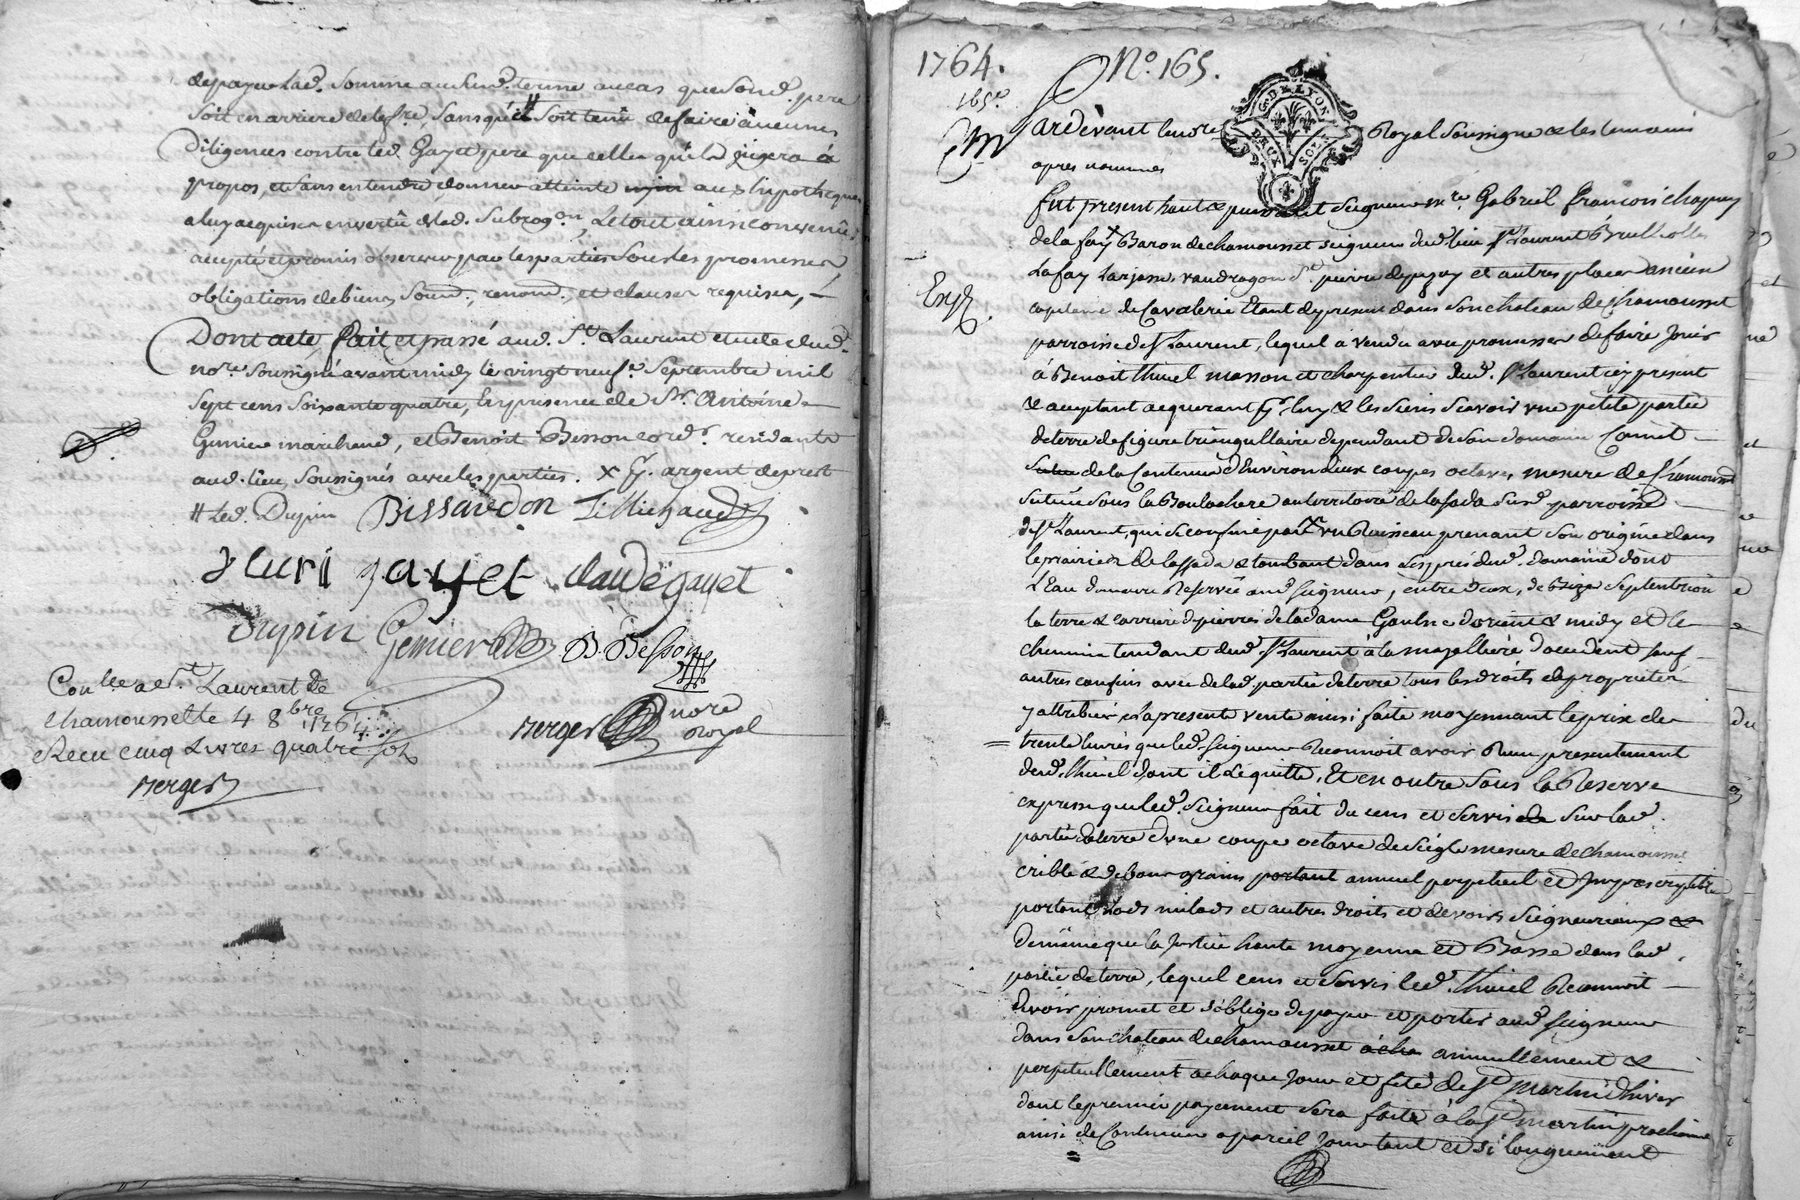 depayer lad. Somme aud. terme au cas que Sond. pere
Soit en arriere de le fre. Sans qu'il Soit tenu de faire aucunes
Diligences contre led. Gayet pere que celles qu'il jugera à
propos, et Sans entendre donner atteinte aux hypotheques
a luy acquises en vertu de lad. Subrogon, Le tout ainsi convenu,
accepté et promis observer par les parties Sous les promesses,
obligations de biens, Soum. renond. et clauses requises,
Dont acte fait et passé aud. St. Laurent etude dud.
nore. Soussigné avant midy le vingt neuf Septembre mil
Sept cens Soixante quatre, En presence de Sr. Antoine
Gimier marchand, et Benoit Besson cordr. residants
aud. lieu, Soussignés avec les parties. x fr. argent de prest
# led. Dupin Bissardon Tillichaud
fleuri gayet claude gayet
Dupin Gemier B. Besson
Conlle a St. Laurent de
chamoussette 4 8bre 1764
Recu cinq Livres quatre sols
Berger nore
Royal
Berger
1764. No. 165.
165e
Pardevant le nore Royal Soussigné & les temoins
G. DE LYON
DEUX SOLS
apres nommés
fut present haut & puissant Seigneur mre. Gabriel françois chapuy
de la fay Baron de chamousset seigneur dud. lieu St. Laurent Brullolles
Lafay Larjasse, vaudragon St. pierre depizay et autres places ancien
Exp.
capitaine de Cavalerie Etant de present dans Son chateau de Chamousset
parroisse de St Laurent, lequel à vendu avec promesses de faire Jouir
à Benoit thivel masson et charpentier dud. St Laurent icy present
& acceptant acquerant pr. luy & les Siens Scavoir une petite partie
de terre de figure triangullaire dependant de Son domaine Cornet
de la Contenue d'Environ deux coupes octaves, mesure de Chamousset
Scituée Sous la Boulachere au territoire de lafada Susd. parroisse
de St Laurent, qui Se confine par un Ruisseau prenant Son origine dans
les prairies de lassada & tombant dans Les prés dud. domaine dont
L'Eau demeure Reservée aud Seigneur, entre deux, de Bize Septentrion
la terre & carriere de pierres de la dame Gaultie d'orient & midy et le
chemin tendant dud. St Laurent à la mazelliere d'occident Sauf
autres confins avec de lad. partie de terre tous les droits de proprieté
y attribués La presente vente ainsi faite moyennant le prix de
trente livres que led. Seigneur Reconnoit avoir Reçu presentement
dud. thivel dont il Le quitte, Et en outre Sous la Reserve
expresse que led. Seigneur fait du cens et Servis Sur lad.
partie de terre d'une coupe octave de Seigle mesure de chamousset
criblé & de bons grains annuel perpetuel et Imprescriptible
portant lods milods et autres droits et devoirs Seigneuriaux &
de même que la Justice haute moyenne et Basse dans lad.
partie de terre, lequel cens et Servis led. thivel Reconnoit
devoir promet et s'oblige de payer et porter aud Seigneur
dans Son chateau de chamousset annuellement &
perpetuellement a chaque Jour et fete de St. martin d'hiver
dont le premier payement Sera fait à la St martin prochaine
ainsi de Continuer a pareil Jour tant et Si longuement